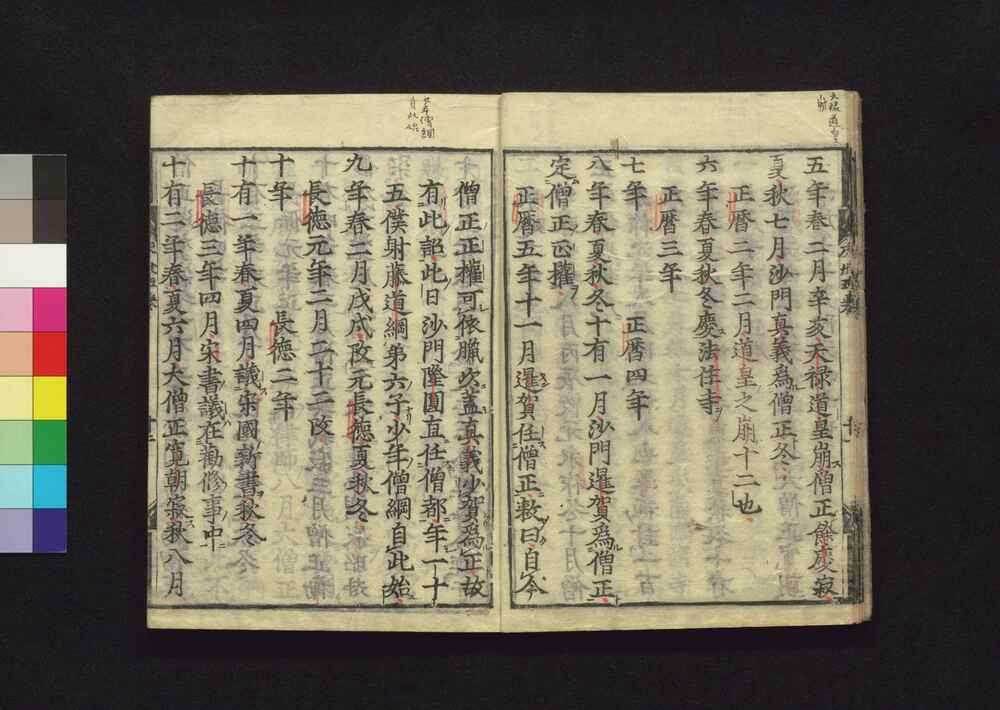 五年春二月辛亥天禄道皇崩僧正餘慶寂
夏秋七月沙門真義為僧正冬
正暦二年二月道皇之崩十二也
六年春夏秋冬慶法住寺
正暦三年
七年 正暦四年
八年春夏秋冬十有一月沙門暹賀為僧正
定僧正正權
正暦五年十一月暹賀任僧正敕曰自今
僧正正權可依臘次蓋真義少賀為正故
有此詔此日沙門隆圓直任僧都年一十
五僕射藤道綱弟六子少年僧綱自此始
九年春二月戊戌改元長德夏秋冬
長德元年二月二十二改
十年 長德二年
十有一年春夏四月議宋國新書秋冬
長德三年四月宋書議在勸修事中
十有二年春夏六月大僧正寛朝寂秋八月